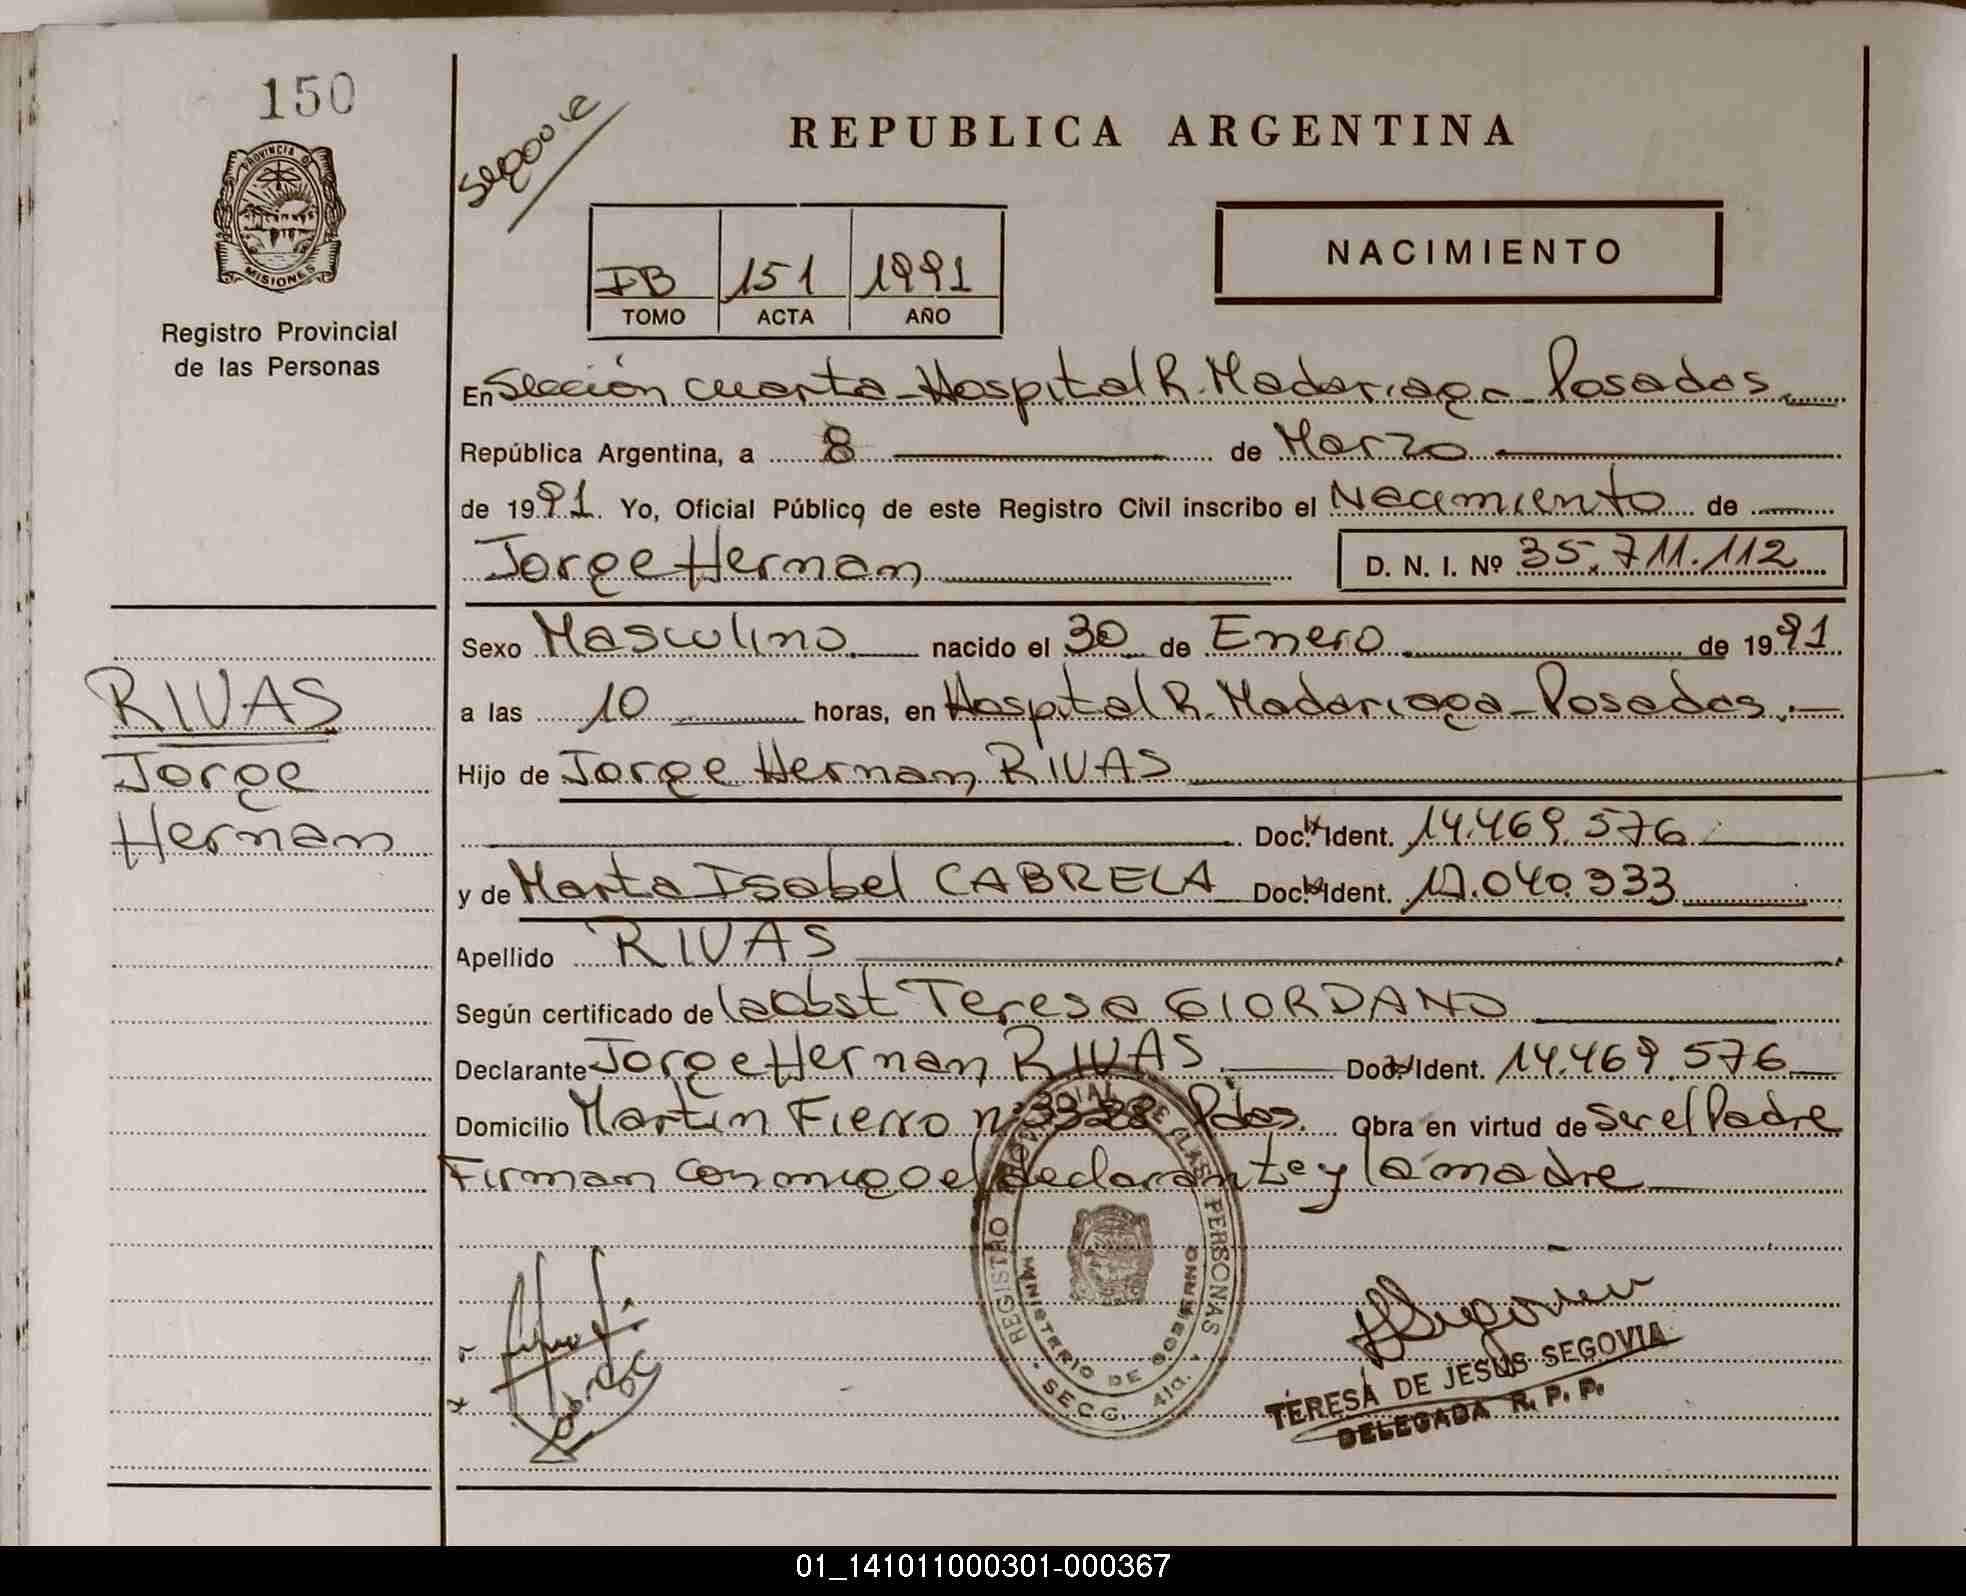 150
PROVINCIA D
MISIONES
Registro Provincial
de las Personas
REPUBLICA ARGENTINA
IB 151 1991
TOMO ACTA AÑO
NACIMIENTO
En Sección cuarta - Hospital R. Madariaga - Posadas
República Argentina, a 8 de Marzo
de 1991. Yo, Oficial Público de este Registro Civil inscribo el Nacimiento de
Jorge Hernan D. N. I. Nº 35.711.112
Sexo Masculino nacido el 30 de Enero de 1991
a las 10 horas, en Hospital R. Madariaga - Posadas.-
RIVAS
Jorge
Hernan
Hijo de Jorge Hernan RIVAS
Doc. Ident. 14.469.576
y de Marta Isabel CABRERA Doc. Ident.
Apellido RIVAS
Según certificado de la Obst Teresa GIORDANO
Declarante Jorge Hernan RIVAS Doc. Ident. 14.469.576
Domicilio Martin Fierro nº 3328 Pdas. Obra en virtud de Ser el Padre
Firman conmigo el declarante y la madre
REGISTRO PROVINCIAL DE LAS PERSONAS
MINISTERIO DE GOBIERNO
SECC. 4ta.
TERESA DE JESUS SEGOVIA
DELEGADA R. P. P.
01_141011000301-000367